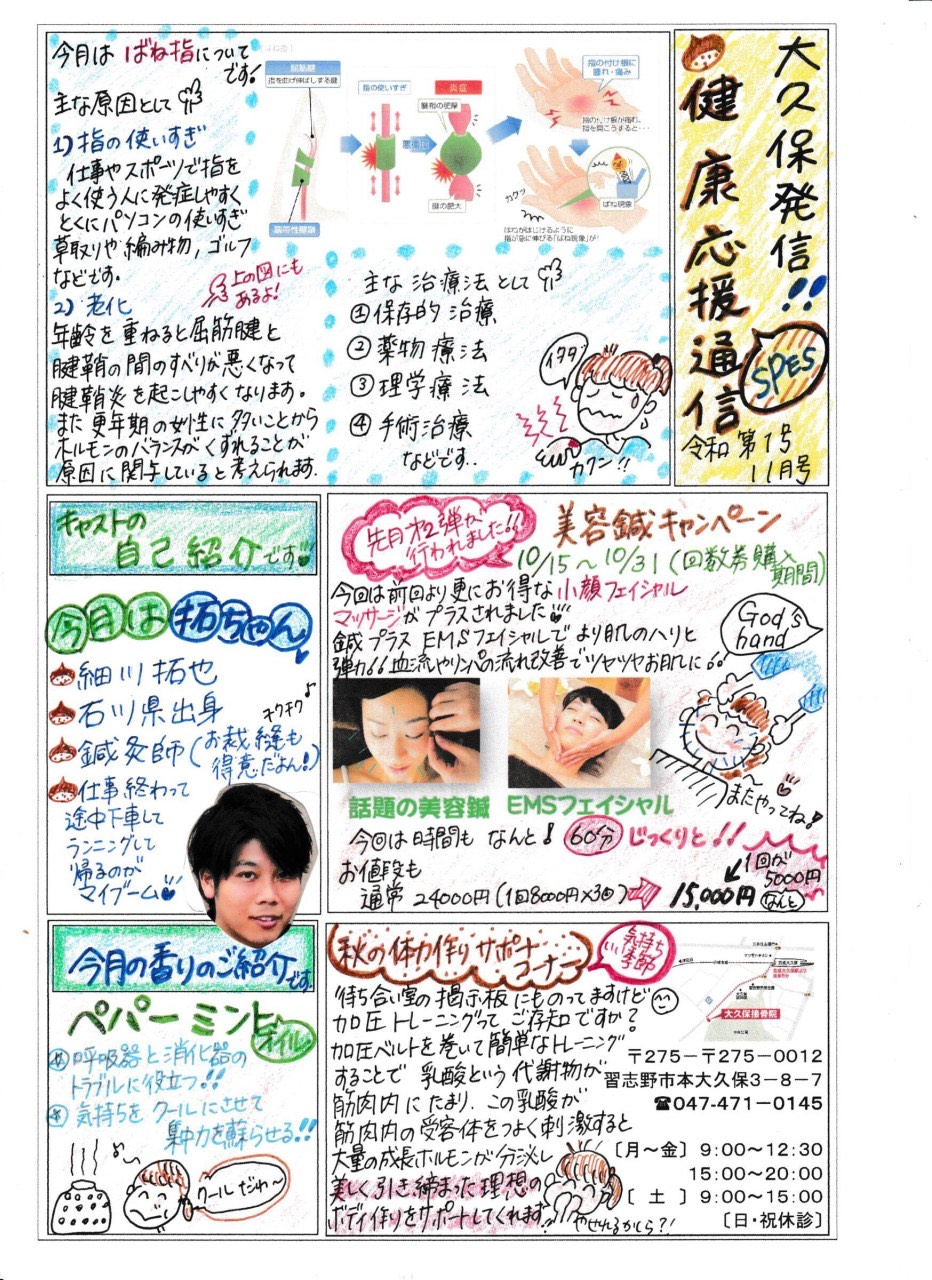 大久保発信!!
健康応援通信
SPES
令和 第7号
11月号
今月は ばね指について
です!
主な原因として
1) 指の使いすぎ
仕事やスポーツで指を
よく使う人に発症しやすく
とくにパソコンの使いすぎ
草取りや編み物、ゴルフ
などです。
上の図にも
あるよ!
2) 老化
年齢を重ねると屈筋腱と
腱鞘の間のすべりが悪くなって
腱鞘炎を起こしやすくなります。
また更年期の女性に多いことから
ホルモンのバランスがくずれることが
原因に関与していると考えられます.
屈筋腱
指を曲げ伸ばしする腱
靭帯性腱鞘
指の使いすぎ
悪循環
炎症
腱鞘の肥厚
腱の肥大
指の付け根に
腫れ・痛み
指の付け根が痛む、
指を開こうすると・・・
カクッ
ばね現象
ばねがはじけるように
指が急に伸びる「ばね現象」が!
主な治療法として
①保存的治療
②薬物療法
③理学療法
④手術治療
などです..
イタタ
カクン!!
キャストの
自己紹介です
今月は拓ちゃん
細川拓也
石川県出身
鍼灸師(お裁縫も
得意だよん!)
チクチク
仕事終わって
途中下車して
ランニングして
帰るのが
マイブーム
先月第2弾が
行われました!!
美容鍼キャンペーン
10/15~10/31(回数券購入
期間)
今回は前回より更にお得な小顔フェイシャル
マッサージがプラスされました
鍼プラスEMSフェイシャルでより肌のハリと
弾力、血流やリンパの流れ改善でツヤツヤお肌に
God's
hand
話題の美容鍼 EMSフェイシャル
またやってね!
今回は時間もなんと! 60分 じっくりと!!
お値段も
通常 24000円(1回8000円×3回)
15,000円
1回が
5000円
なんと
今月の香りのご紹介です
ペパーミント
オイル
呼吸器と消化器の
トラブルに役立つ!!
気持ちをクールにさせて
集中力を蘇らせる!!
クールだわ~
秋の体力作りサポート
コーナー
気持ち
いい
季節
待ち合い室の掲示板にものってますけど
加圧トレーニングってご存知ですか?
加圧ベルトを巻いて簡単なトレーニング
することで 乳酸という代謝物が
筋肉内にたまり、この乳酸が
筋肉内の受容体をつよく刺激すると
大量の成長ホルモンが分泌し
美しく引き締まった理想の
ボディ作りをサポートしてくれます。
やせれるかしら?!
大久保接骨院
〒275-〒275-0012
習志野市本大久保3-8-7
☎047-471-0145
〔月~金〕9:00~12:30
15:00~20:00
〔 土 〕9:00~15:00
〔日・祝休診〕